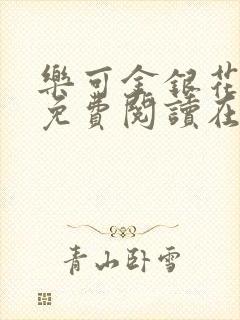 樂可金銀花
免費閱讀在
青山卧雪